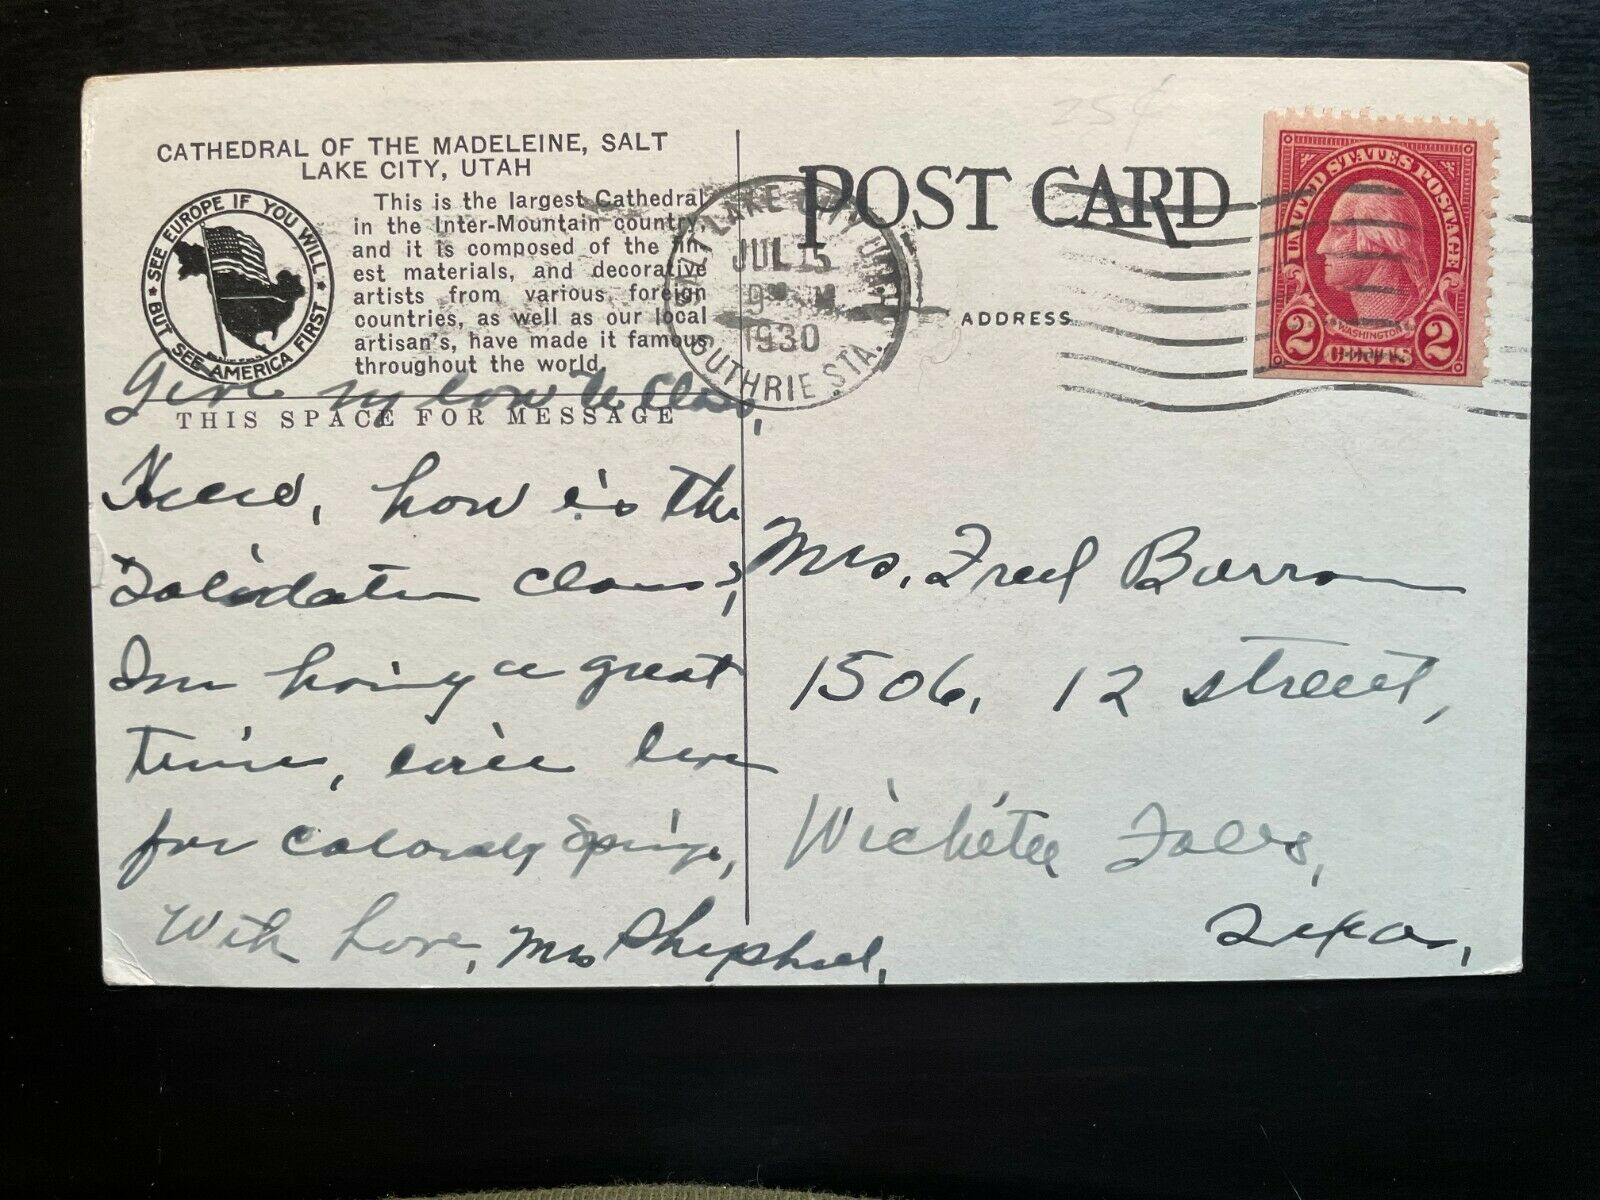 CATHEDRAL OF THE MADELEINE, SALT
LAKE CITY, UTAH
This is the largest Cathedral
in the Inter-Mountain country,
and it is composed of the fin-
est materials, and decorative
artists from various foreign
countries, as well as our local
artisan's, have made it famous
throughout the world.
SEE EUROPE IF YOU WILL
BUT SEE AMERICA FIRST
Give my love to Class,
THIS SPACE FOR MESSAGE
how is the
class,
Im having a great
time, will leave
for Colorado Springs,
With Love, Mrs Shephard,
25¢
POST CARD
SALT LAKE CITY, UTAH
JUL 15
9
1930
GUTHRIE STA.
ADDRESS
UNITED STATES POSTAGE
WASHINGTON
2 CENTS 2
Mrs. Fred Barron
1506, 12 street,
Wichita Falls,
Texas,